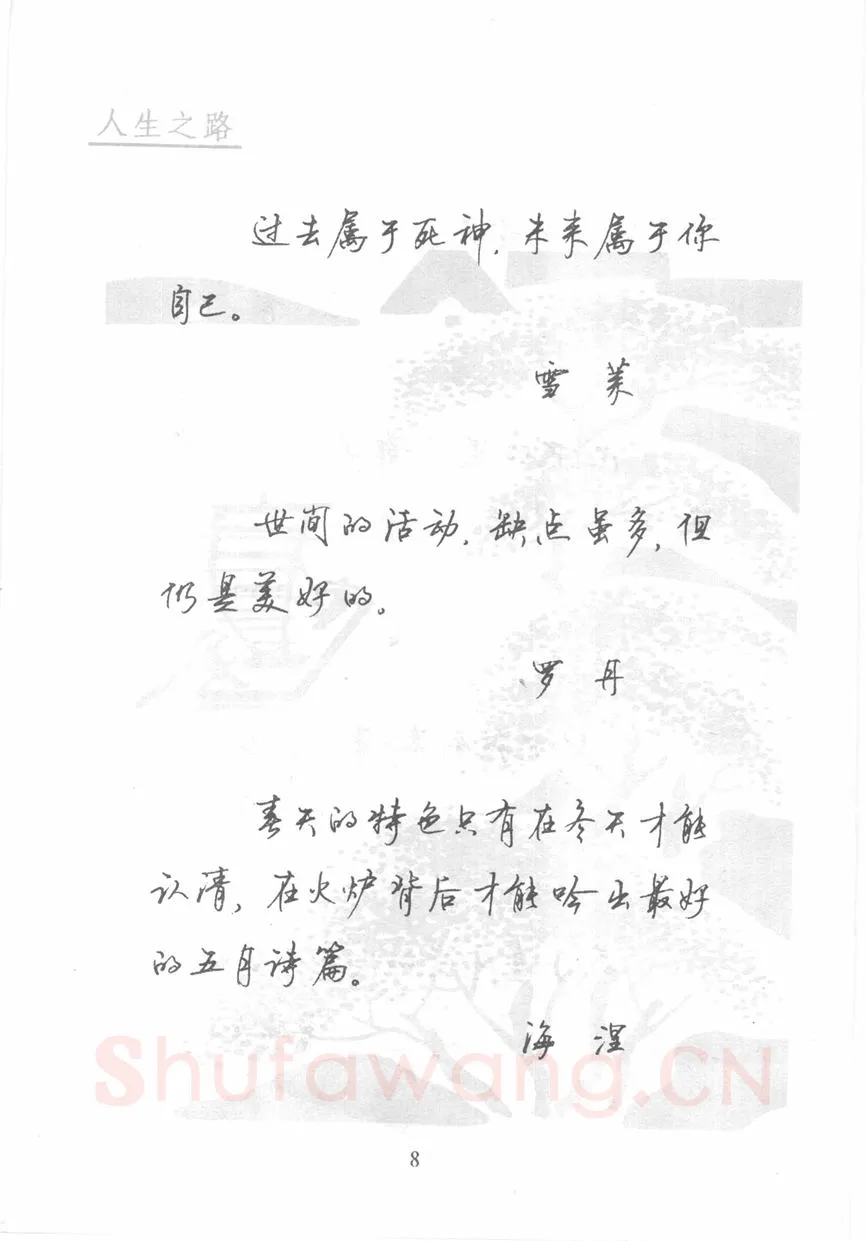 人生之路
过去属于死神,未来属于你
自己。
雪 莱
世间的活动,缺点虽多,但
仍是美好的。
罗 丹
春天的特色只有在冬天才能
认清,在火炉背后才能吟出最好
的五月诗篇。
海 涅
Shufawang.CN
8